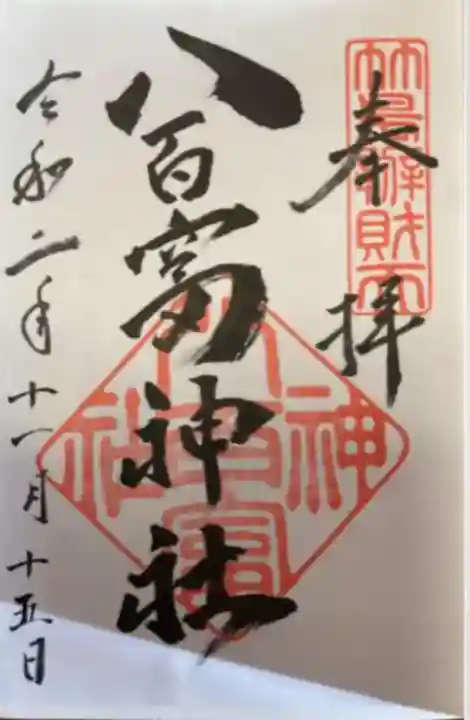 奉拝
竹島辨財天
八百富神社
八百富神社
令和二年十一月十五日